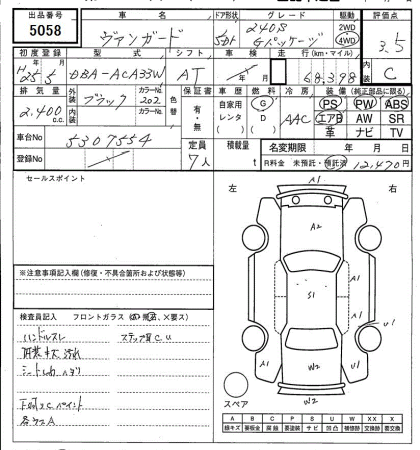 出品番号 車名 ドア形状 グレード 駆動 評価点
5058 ヴァンガード 5D 240S Gパッケージ 2WD 4WD 3.5
初度登録 型式 シフト 車検 走行(km・マイル) 内装
H25.5 DBA-ACA33W AT 68,398 C
排気量 外装 カラーNo. 色替 保証書 車歴 燃料 冷房 装備(純正部品に限る)
2,400 c.c. ブラック 202 有・無 自家用 G AAC PS PW ABS
内装 カラーNo. レンタ D エアB AW SR
車台No 5307554 ( ) ( ) 革 ナビ TV
登録No 定員 積載量 名変期限 年 月 日
7人 t R料金 未預託・預託済 12,470円
セールスポイント 左 右
A1
A2
A1
S1
※注意事項記入欄(修復・不具合箇所および状態等)
U1
検査員記入 フロントガラス
ハンドルスレ ステップ質CU
内装キズ汚れ
A1 W2 A1
W2
スペア
下回りサビペイント
各ウスA
A B C P S U W X XX
線キズ 要板金 腐蝕 要塗装 サビ 凹凸 補修跡 交換跡 要交換